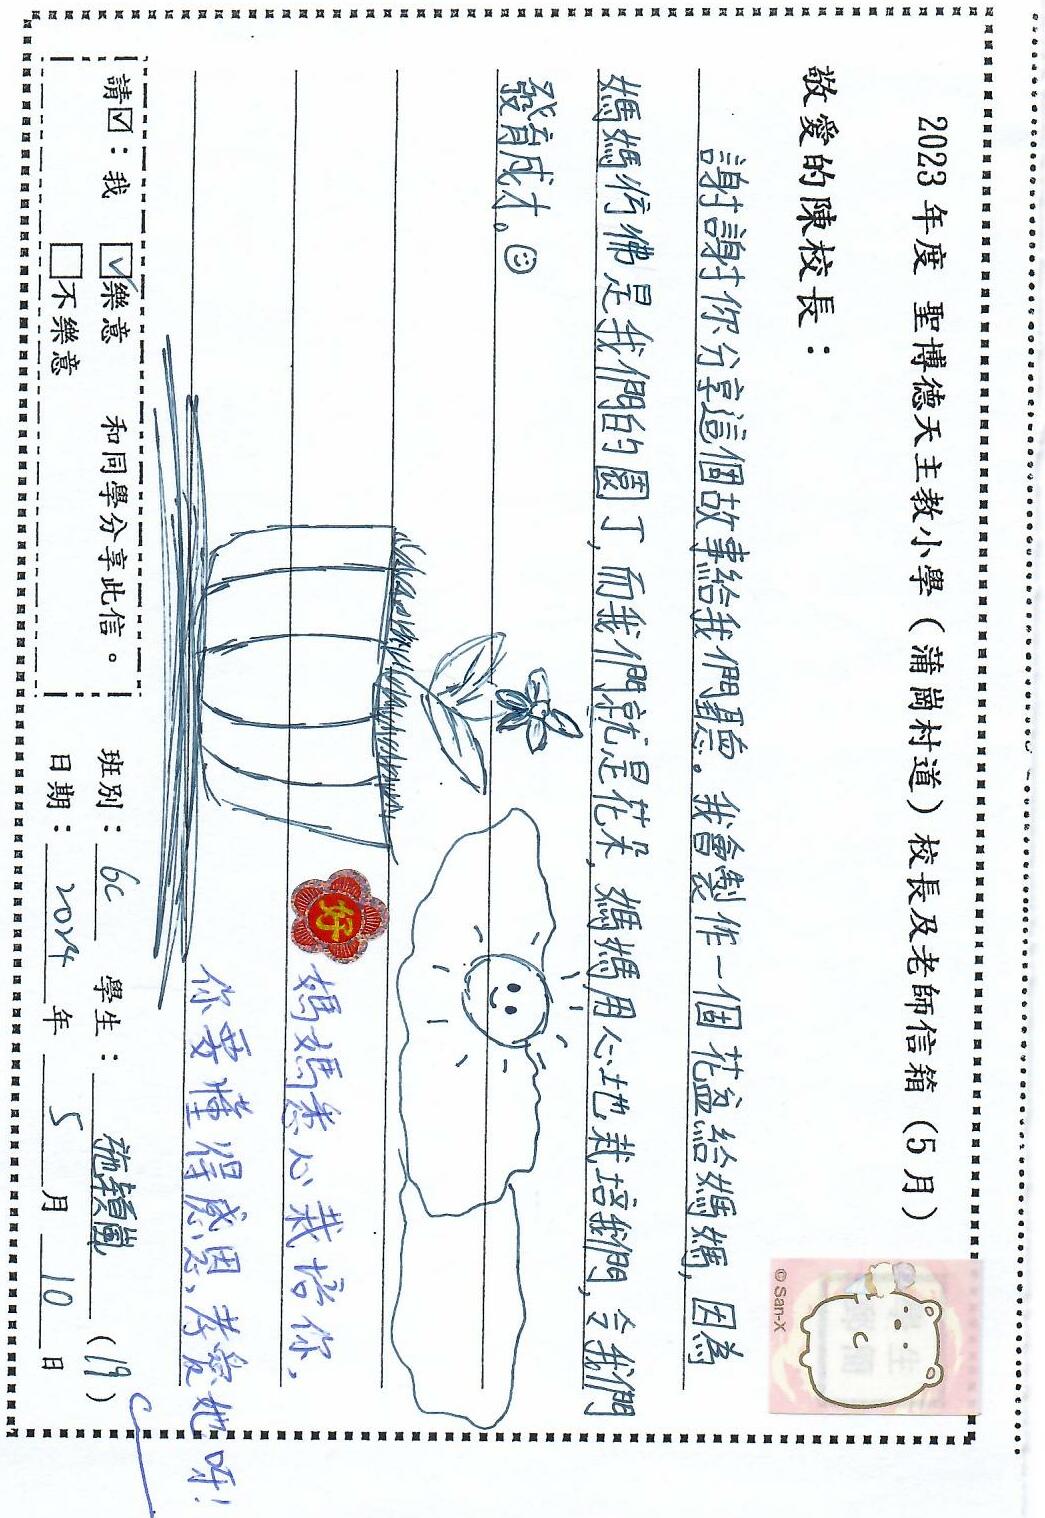 2023 年度 聖博德天主教小學（蒲崗村道）校長及老師信箱（5 月）
敬愛的陳校長：
謝謝你分享這個故事給我們聽。我會製作一個花盆給媽媽,因為
媽媽彷彿是我們的園丁,而我們就是花朵,媽媽用心地栽培我們,令我們
發育成才。
好
媽媽悉心栽培你，
你要懂得感恩、孝愛她呀!
請☑：我 ☑樂意 和同學分享此信。
□不樂意
班別：6C 學生：施穎嵐 (19)
日期：2024 年 5 月 10 日
© San-X